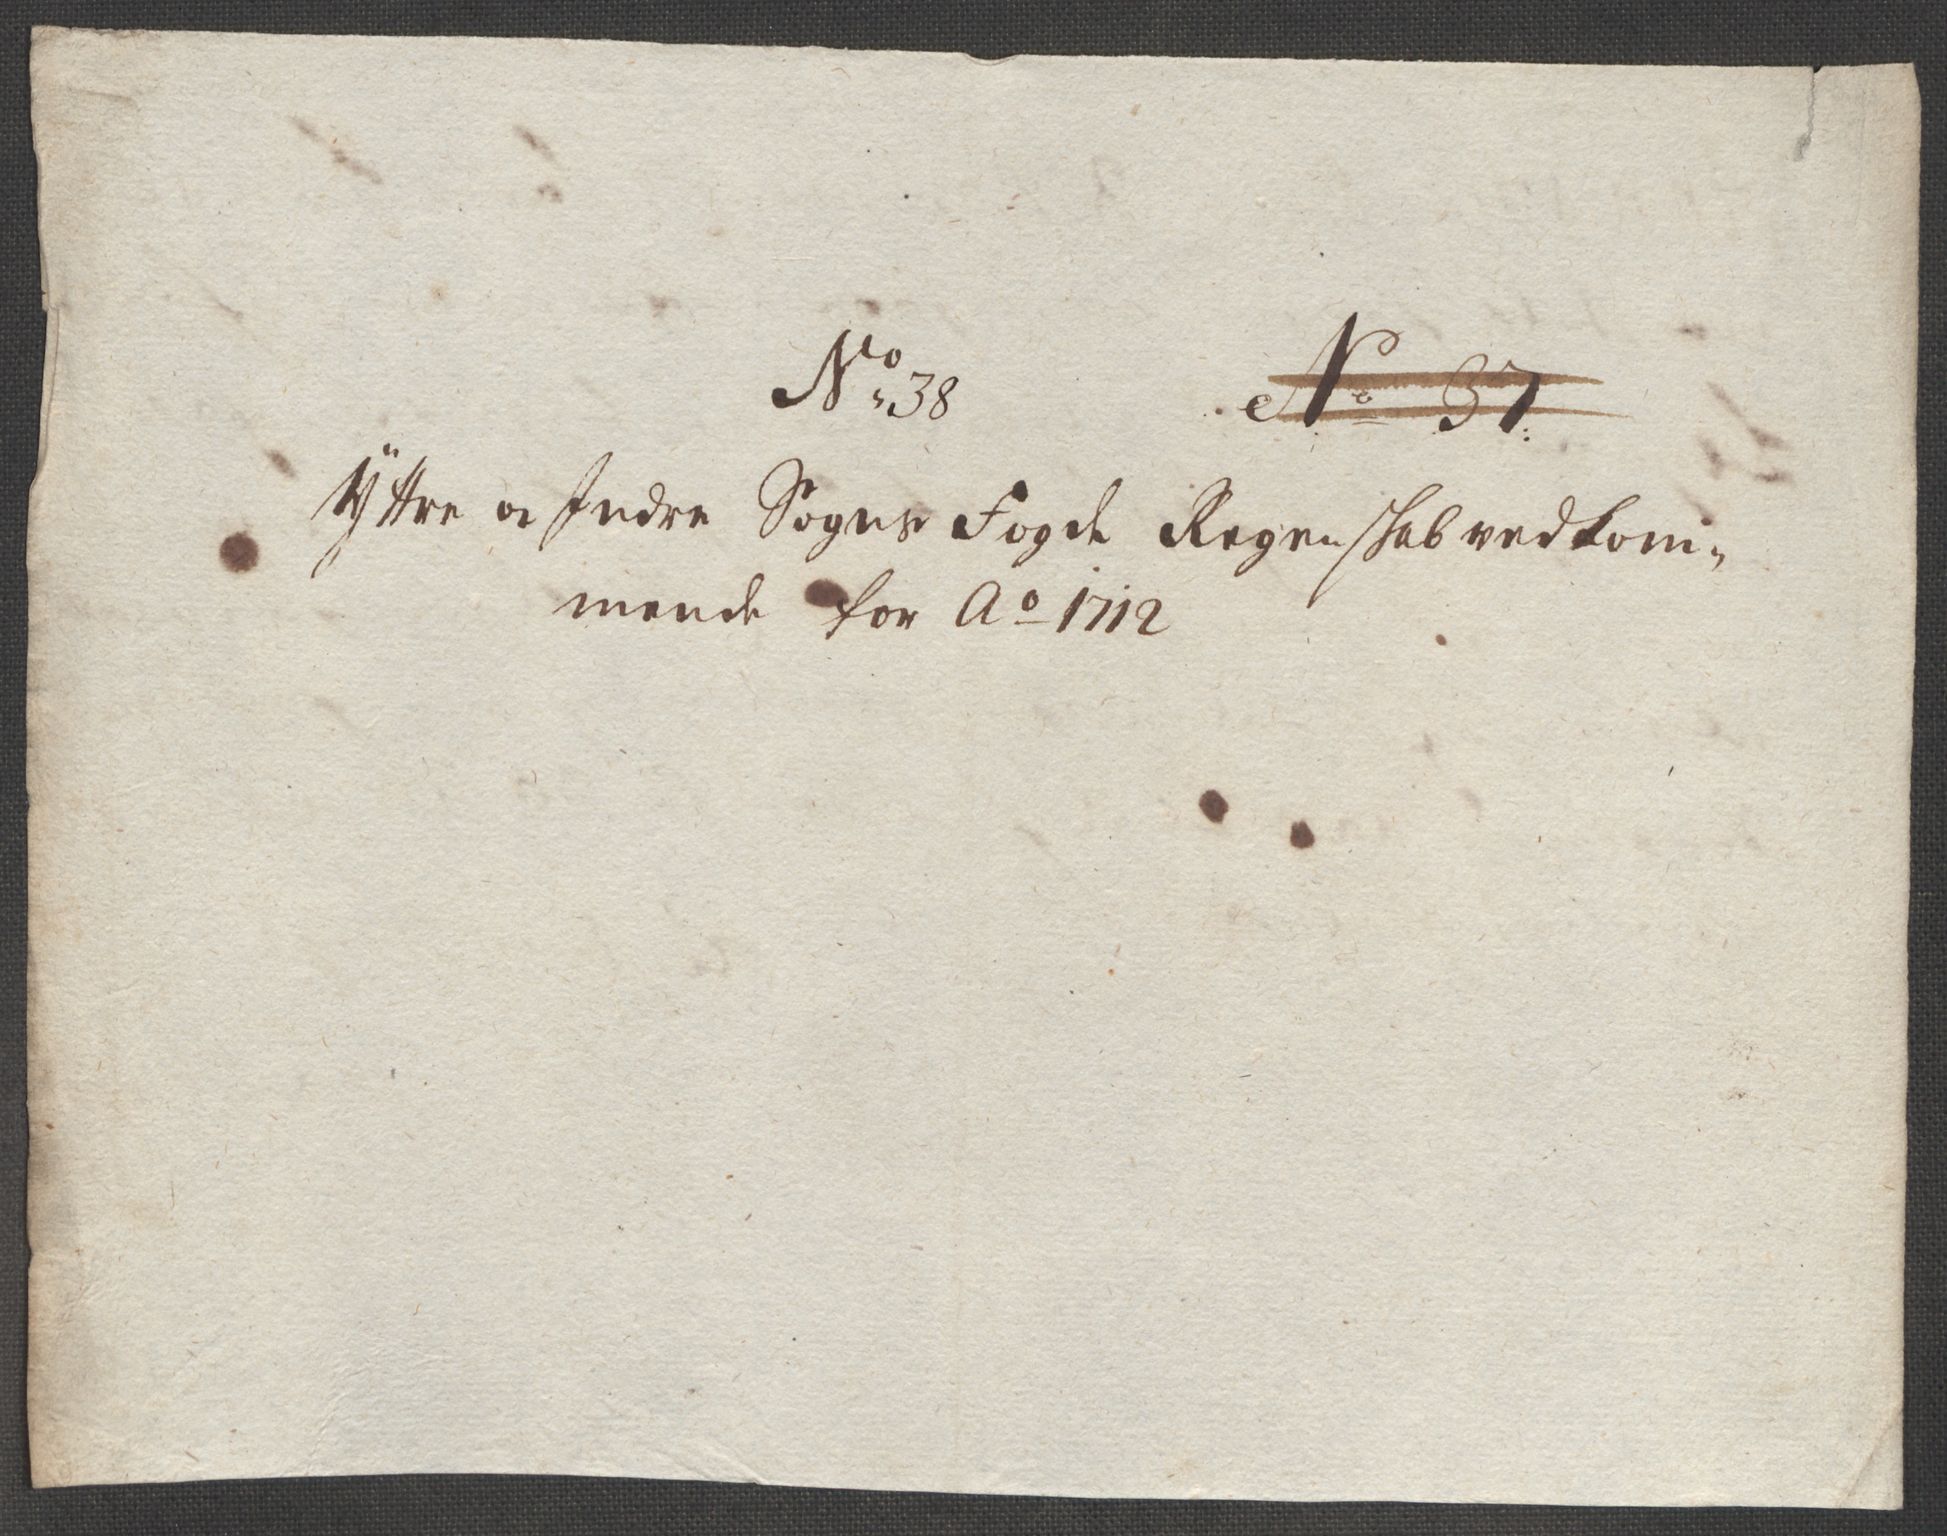 No: 38 No 37:
Ÿttre oc Indre Sogns Fogde Regenschab vedkom-
mende for Ao 1712